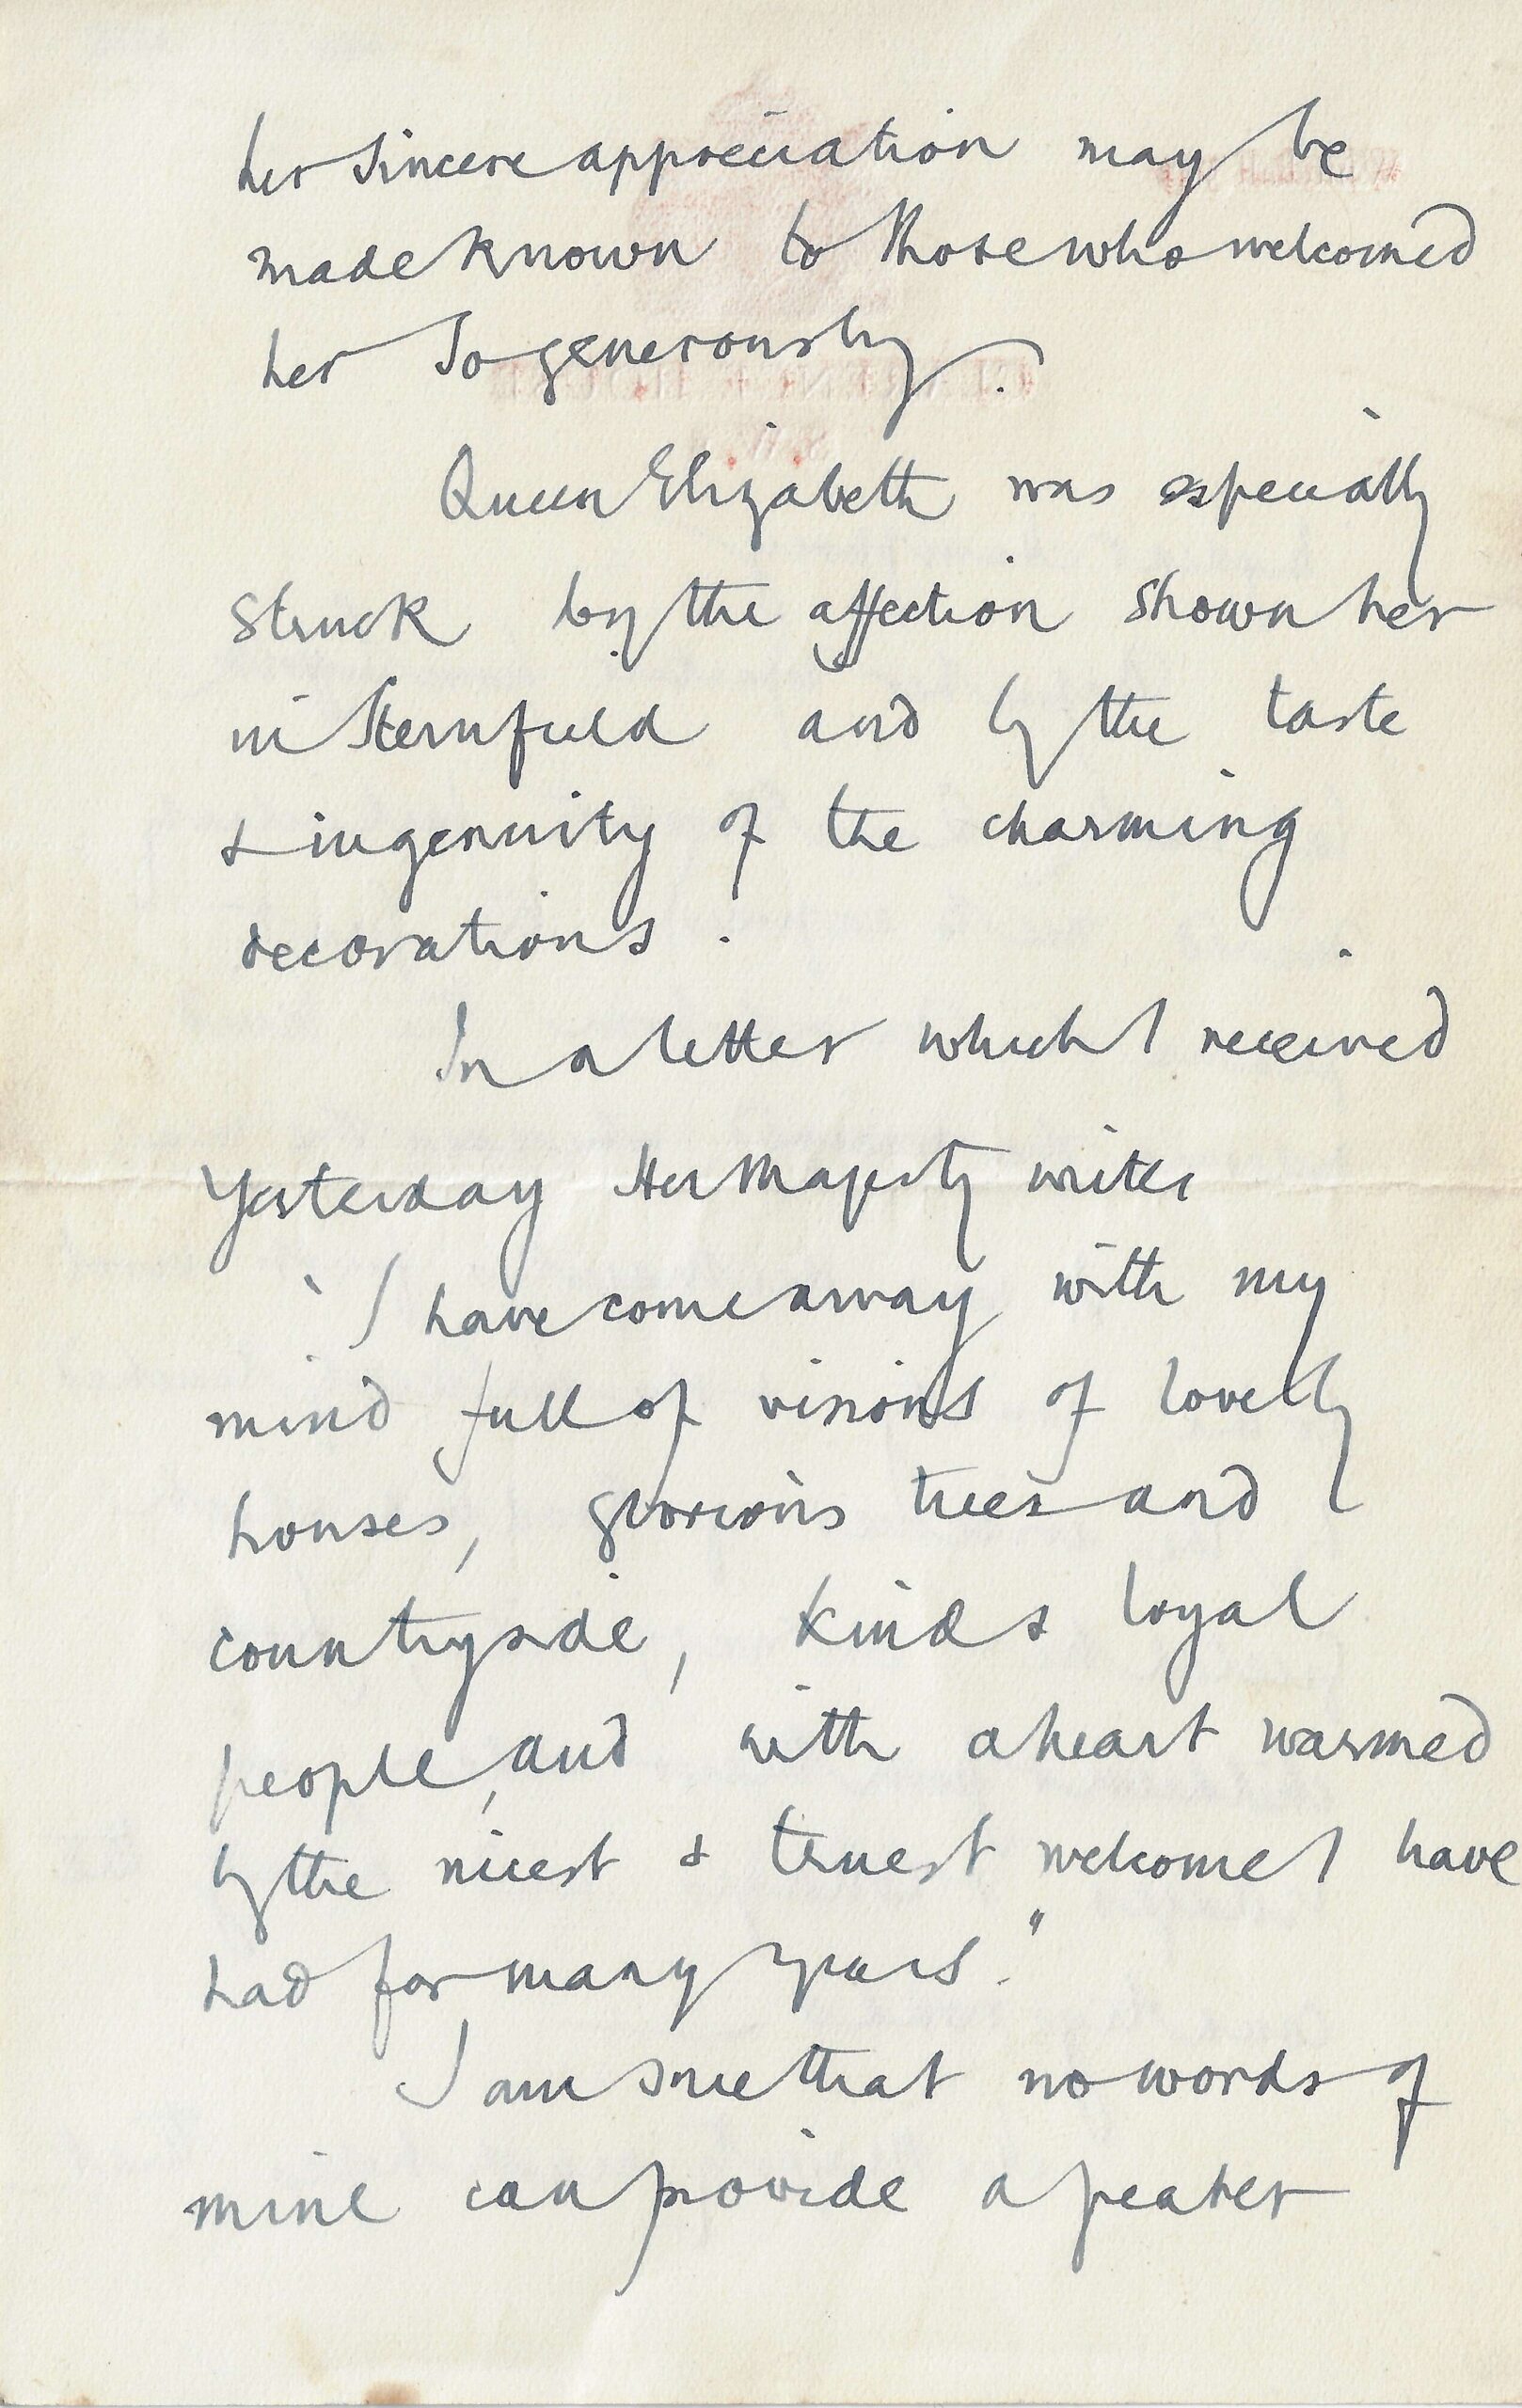 her sincere appreciation may be
made known to those who welcomed
her so generously.
Queen Elizabeth was especially
struck by the affection shown her
in Sternfield and by the taste
& ingenuity of the charming
decorations.
In a letter which I received
yesterday Her Majesty writes
" I have come away with my
mind full of visions of lovely
houses, glorious trees and
countryside, kind & loyal
people, and with a heart warmed
by the nicest & truest welcome I have
had for many years."
I am sure that no words of
mine can provide a greater